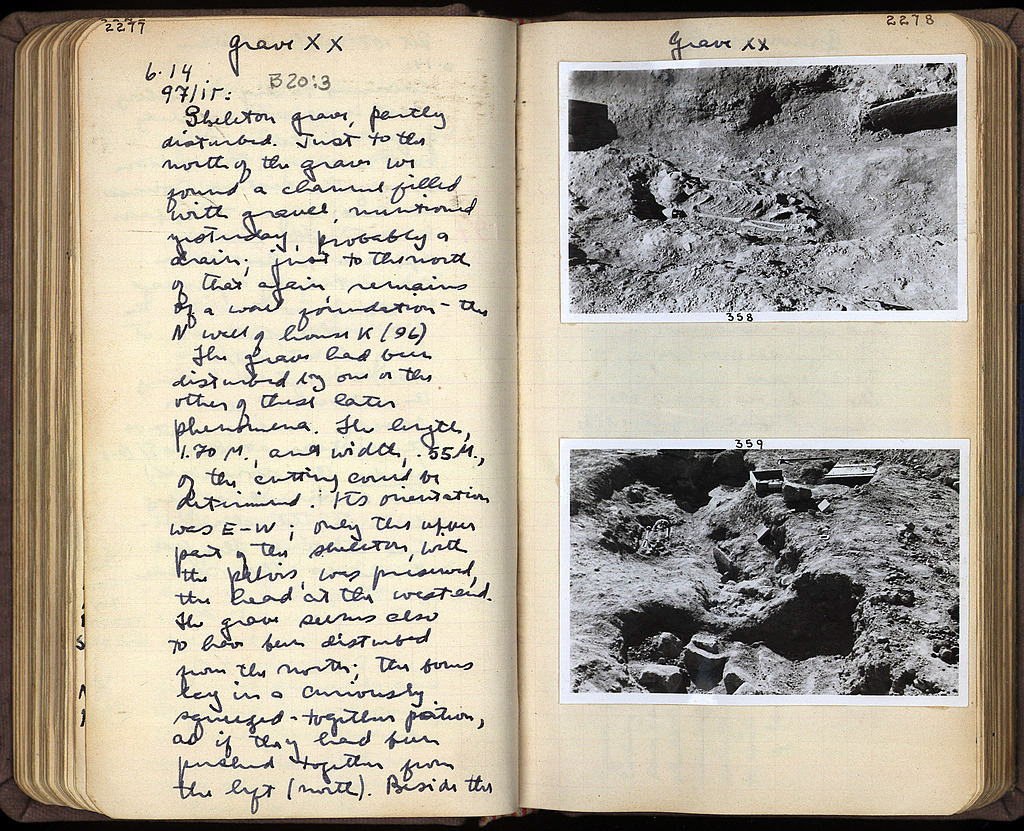 2277
Grave XX
6.14
B20:3
97/ΙΓ:
Skeleton grave, partly
disturbed. Just to the
north of the grave we
found a channel filled
with gravel, mentioned
yesterday, probably a
drain; just to the north
of that again remains
of a wall foundation - the
N wall of house K (96)
The grave had been
disturbed by one or the
other of these later
phenomena. The length,
1.70 M., and width, .55 M.,
of the cutting could be
determined. Its orientation
was E-W; only the upper
part of the skeleton, with
the pelvis, was preserved,
the head at the west end.
The grave seems also
to have been disturbed
from the north; the bones
lay in a curiously
squeezed-together position,
as if they had been
pushed together from
the left (north). Beside the
2278
Grave XX
358
359